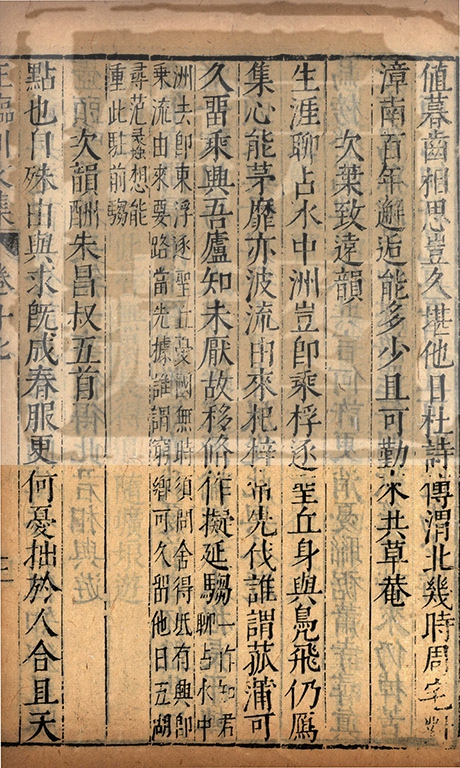 值暮齒相思豈久堪他日杜詩傳渭北幾時周宅對
漳南百年邂逅能多少且可勤來共草菴
次葉致遠韻
生涯聊占水中洲豈即乘桴逐聖丘身與鳧飛仍鴈
集心能茅靡亦波流由來杞梓常先伐誰謂菰蒲可
久留乘興吾廬知未厭故移脩作擬延騶一作知君
聊占水中
洲去即東浮逐聖丘憂國無時須問舍得坻有興即
乘流由來要路當先據誰謂窮鄉可久留他日五湖
尋范蠡想能
重此駐前騶
次韻酬朱昌叔五首
點也自殊由與求既成春服更何憂拙於人合且天
卷十七